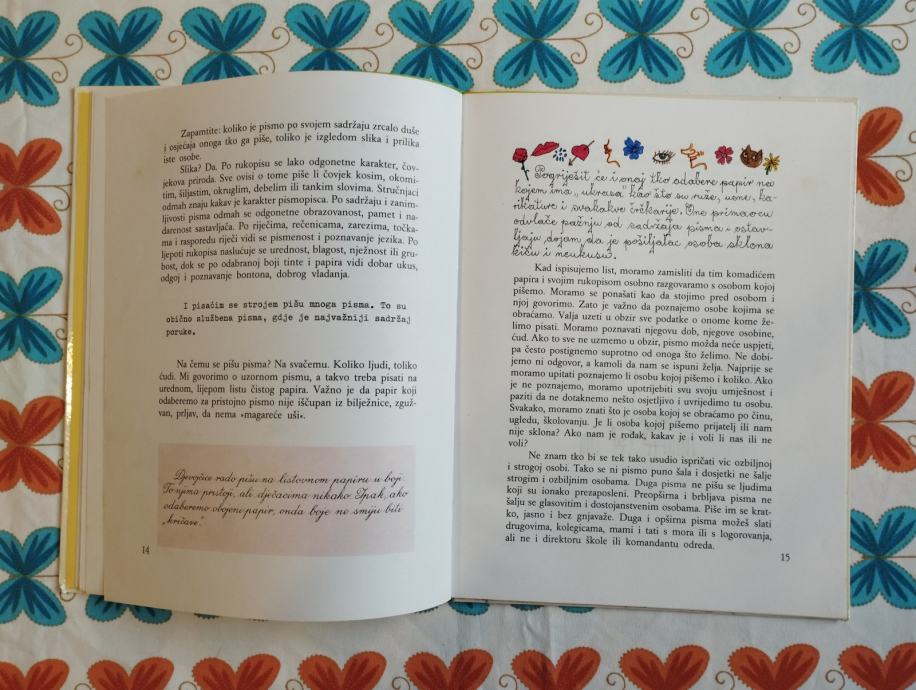 Zapamtite: koliko je pismo po svojem sadržaju zrcalo duše
i osjećaja onoga tko ga piše, toliko je izgledom slika i prilika
iste osobe.
Slika? Da. Po rukopisu se lako odgonetne karakter, čov-
jekova priroda. Sve ovisi o tome piše li čovjek kosim, okomi-
tim, šiljastim, okruglim, debelim ili tankim slovima. Stručnjaci
odmah znaju kakav je karakter pismopisca. Po sadržaju i zanim-
ljivosti pisma odmah se odgonetne obrazovanost, pamet i na-
darenost sastavljača. Po riječima, rečenicama, zarezima, točka-
ma i rasporedu riječi vidi se pismenost i poznavanje jezika. Po
ljepoti rukopisa naslućuje se urednost, blagost, nježnost ili gru-
bost, dok se po odabranoj boji tinte i papira vidi dobar ukus,
odgoj i poznavanje bontona, dobrog vladanja.
I pisaćim se strojem pišu mnoga pisma. To su
obično službena pisma, gdje je najvažniji sadržaj
poruke.
Na čemu se pišu pisma? Na svačemu. Koliko ljudi, toliko
ćudi. Mi govorimo o uzornom pismu, a takvo treba pisati na
urednom, lijepom listu čistog papira. Važno je da papir koji
odaberemo za pristojno pismo nije iščupan iz bilježnice, zguž-
van, prljav, da nema »magareće uši«.
Djevojčice rado pišu na listovnom papiru u boji.
To njima pristoji, ali dječacima nikako. Ipak, ako
odaberemo obojeni papir, onda boje ne smiju biti
„kričave".
14
Pogriješit će i onaj tko odabere papir na
kojem ima „ukrasa" kao što su ruže, usne, ka-
rikature i svakakve črčkarije. One primaocu
odvlače pažnju od sadržaja pisma i ostav-
ljaju dojam da je pošiljalac osoba sklona
kiču i neukusu.
Kad ispisujemo list, moramo zamisliti da tim komadićem
papira i svojim rukopisom osobno razgovaramo s osobom kojoj
pišemo. Moramo se ponašati kao da stojimo pred osobom i
njoj govorimo. Zato je važno da poznajemo osobe kojima se
obraćamo. Valja uzeti u obzir sve podatke o onome kome že-
limo pisati. Moramo poznavati njegovu dob, njegove osobine,
ćud. Ako to sve ne uzmemo u obzir, pismo možda neće uspjeti,
pa često postignemo suprotno od onoga što želimo. Ne dobi-
jemo ni odgovor, a kamoli da nam se ispuni želja. Najprije se
moramo upitati poznajemo li osobu kojoj pišemo i koliko. Ako
je ne poznajemo, moramo upotrijebiti svu svoju umješnost i
paziti da ne dotaknemo nešto osjetljivo i uvrijedimo tu osobu.
Svakako, moramo znati što je osoba kojoj se obraćamo po činu,
ugledu, školovanju. Je li osoba kojoj pišemo prijatelj ili nam
nije sklona? Ako nam je rođak, kakav je i voli li nas ili ne
voli?
Ne znam tko bi se tek tako usudio ispričati vic ozbiljnoj
i strogoj osobi. Tako se ni pismo puno šala i dosjetki ne šalje
strogim i ozbiljnim osobama. Duga pisma ne pišu se ljudima
koji su ionako prezaposleni. Preopširna i brbljava pisma ne
šalju se glasovitim i dostojanstvenim osobama. Piše im se krat-
ko, jasno i bez gnjavaže. Duga i opširna pisma možeš slati
drugovima, kolegicama, mami i tati s mora ili s logorovanja,
ali ne i direktoru škole ili komandantu odreda.
15